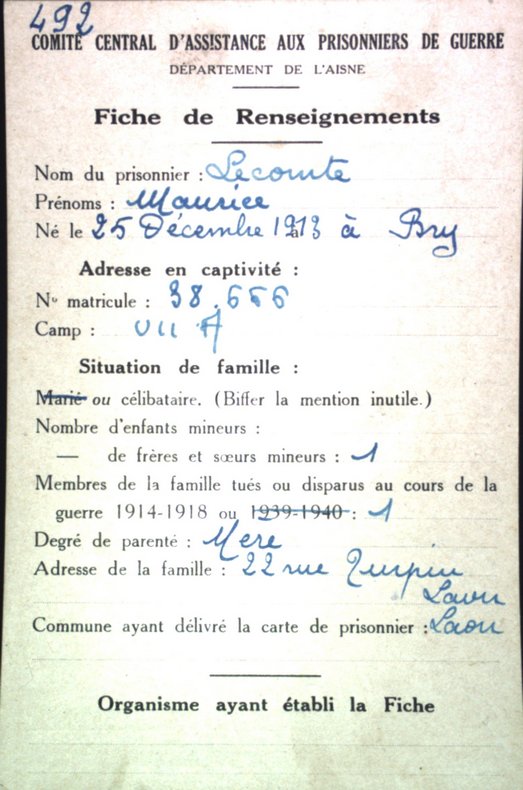 492
COMITÉ CENTRAL D'ASSISTANCE AUX PRISONNIERS DE GUERRE
DÉPARTEMENT DE L'AISNE
Fiche de Renseignements
Nom du prisonnier : Lecomte
Prénoms : Maurice
Né le 25 Décembre 1913 à Bry
Adresse en captivité :
N° matricule : 38.666
Camp : VII A
Situation de famille :
Marié ou célibataire. (Biffer la mention inutile.)
Nombre d'enfants mineurs :
— de frères et sœurs mineurs : 1
Membres de la famille tués ou disparus au cours de la
guerre 1914-1918 ou 1939-1940 : 1
Degré de parenté : Mere
Adresse de la famille : 22 rue Turpin
Laon
Commune ayant délivré la carte de prisonnier : Laon
Organisme ayant établi la Fiche